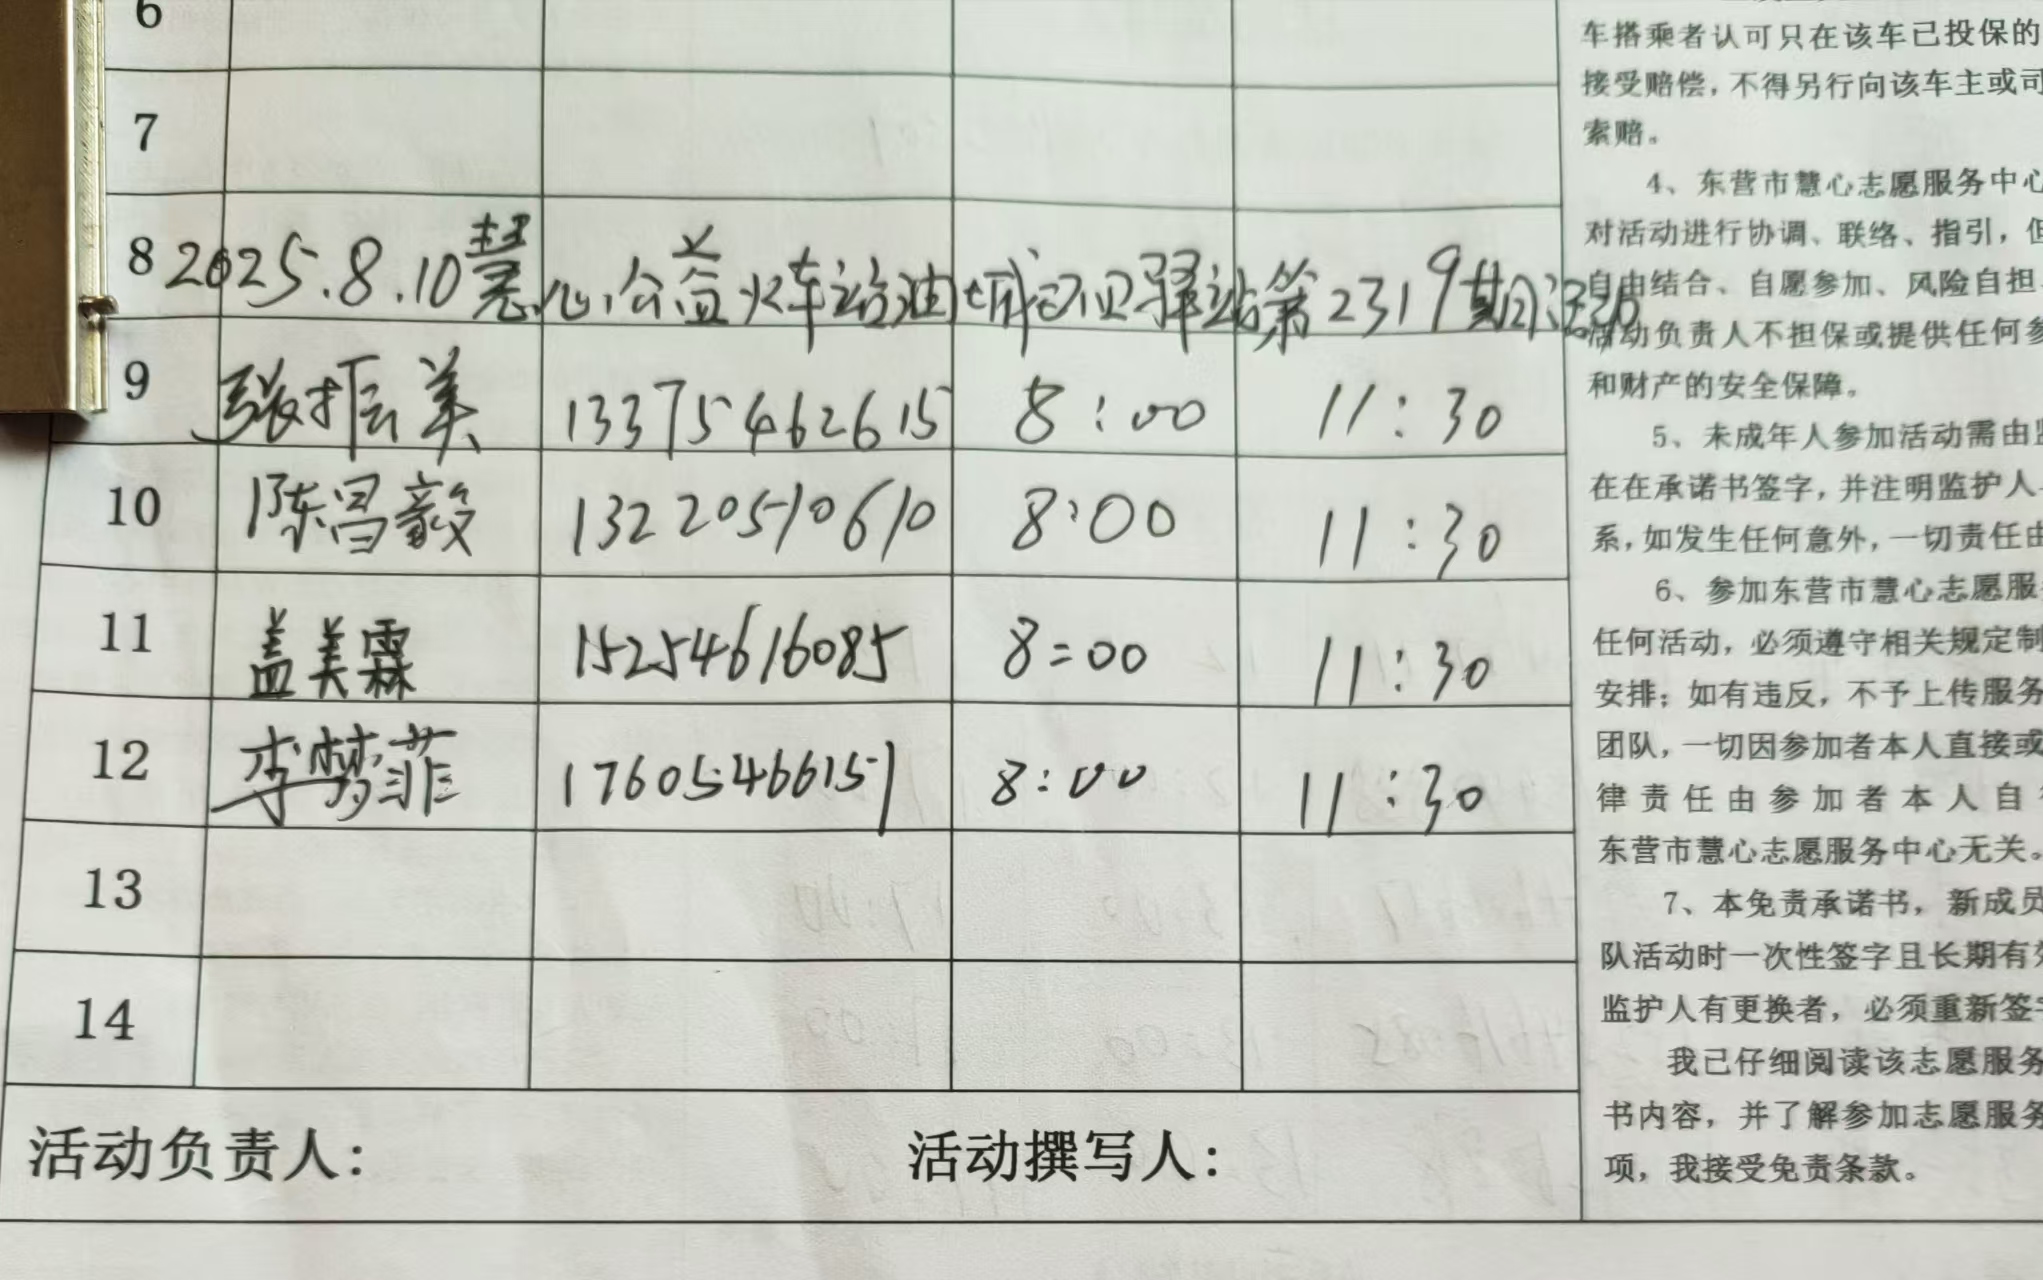 6
7
8 2025.8.10慧心公益火车站油城记忆驿站第2319期活动
9 张振美 13375462615 8:00 11:30
10 陈昌毅 13220510610 8:00 11:30
11 盖美霖 15254616085 8=00 11:30
12 李梦菲 17605466151 8:00 11:30
13
14
活动负责人: 活动撰写人:
车搭乘者认可只在该车已投保的
接受赔偿，不得另行向该车主或司
索赔。
4、东营市慧心志愿服务中心
对活动进行协调、联络、指引，但
自由结合、自愿参加、风险自担
活动负责人不担保或提供任何参
和财产的安全保障。
5、未成年人参加活动需由监
在在承诺书签字，并注明监护人
系，如发生任何意外，一切责任由
6、参加东营市慧心志愿服
任何活动，必须遵守相关规定制
安排；如有违反，不予上传服务
团队，一切因参加者本人直接或
律责任由参加者本人自
东营市慧心志愿服务中心无关。
7、本免责承诺书，新成员
队活动时一次性签字且长期有效
监护人有更换者，必须重新签字
我已仔细阅读该志愿服务
书内容，并了解参加志愿服务
项，我接受免责条款。